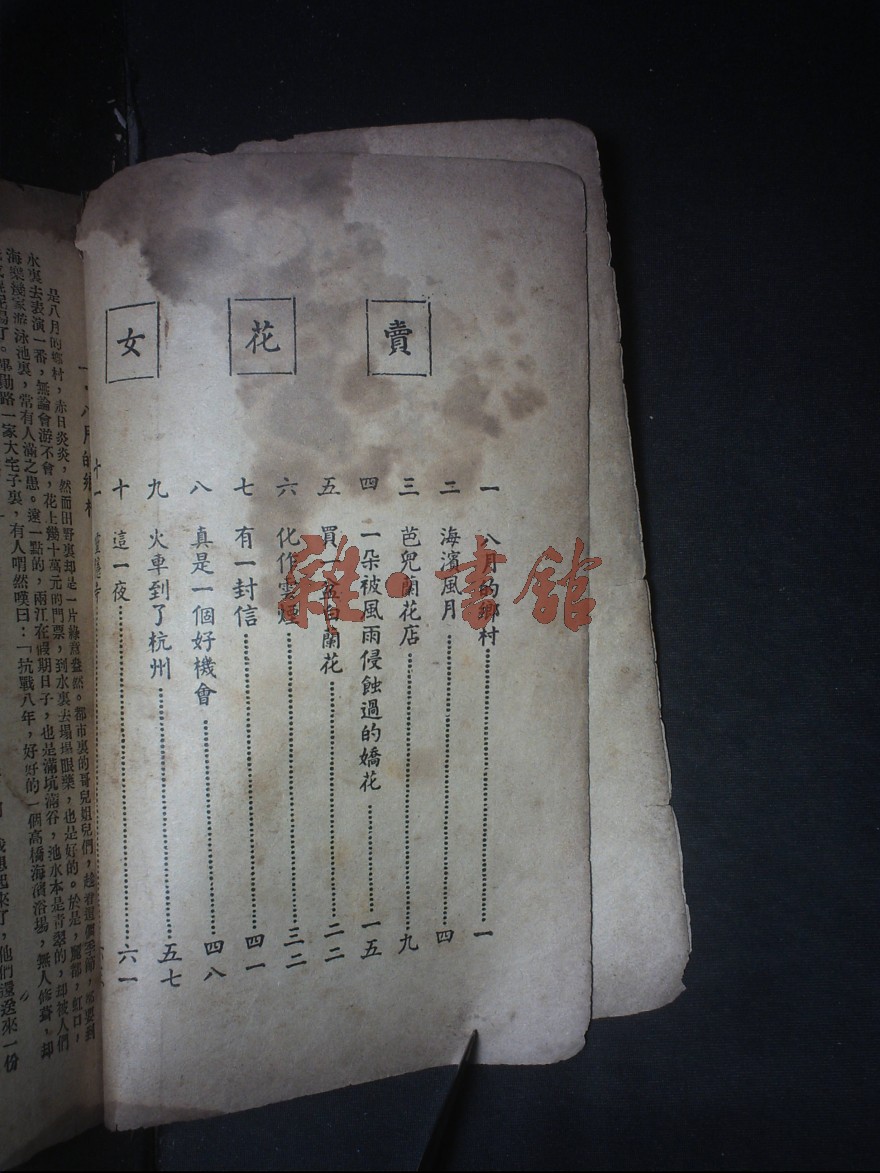 賣花女
一 八月的鄉村 一
二 海濱風月 四
三 芭兒蘭花店 九
四 一朵被風雨侵蝕過的嬌花 一五
五 買一盆白蘭花 二二
六 化作雲煙 三二
七 有一封信 四一
八 真是一個好機會 四八
九 火車到了杭州 五七
十 這一夜 六一
十一
雜·書館
八月的鄉村
是八月的鄉村,赤日炎炎,然而田野裏却是一片綠蔭盎然。都市裏的哥兒姐兒們,趁着這個季節,都要到
水裏去表演一番,無論會游不會,花上幾十萬元的門票,到水裏去塌塌眼藥,也是好的。於是,麗都,虹口,
海樂幾家游泳池裏,常有人滿之患。遠一點的,兩江在假期日子,也是滿坑滿谷,池水本是青翠的,却被人們
路一家大宅子裏,有人喟然嘆曰:「抗戰八年,好好的一個高橋海濱浴場,無人修葺,却
想起來了,他們還送來一份